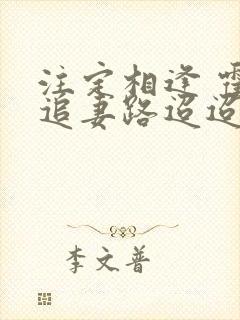 注定相逢 霍
追妻路迢迢
李文普